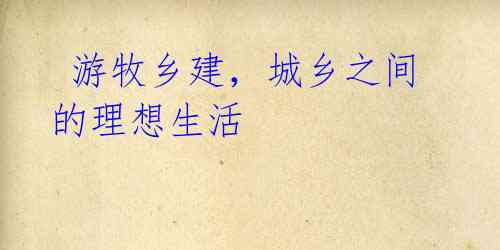 游牧乡建，城乡之间
的理想生活